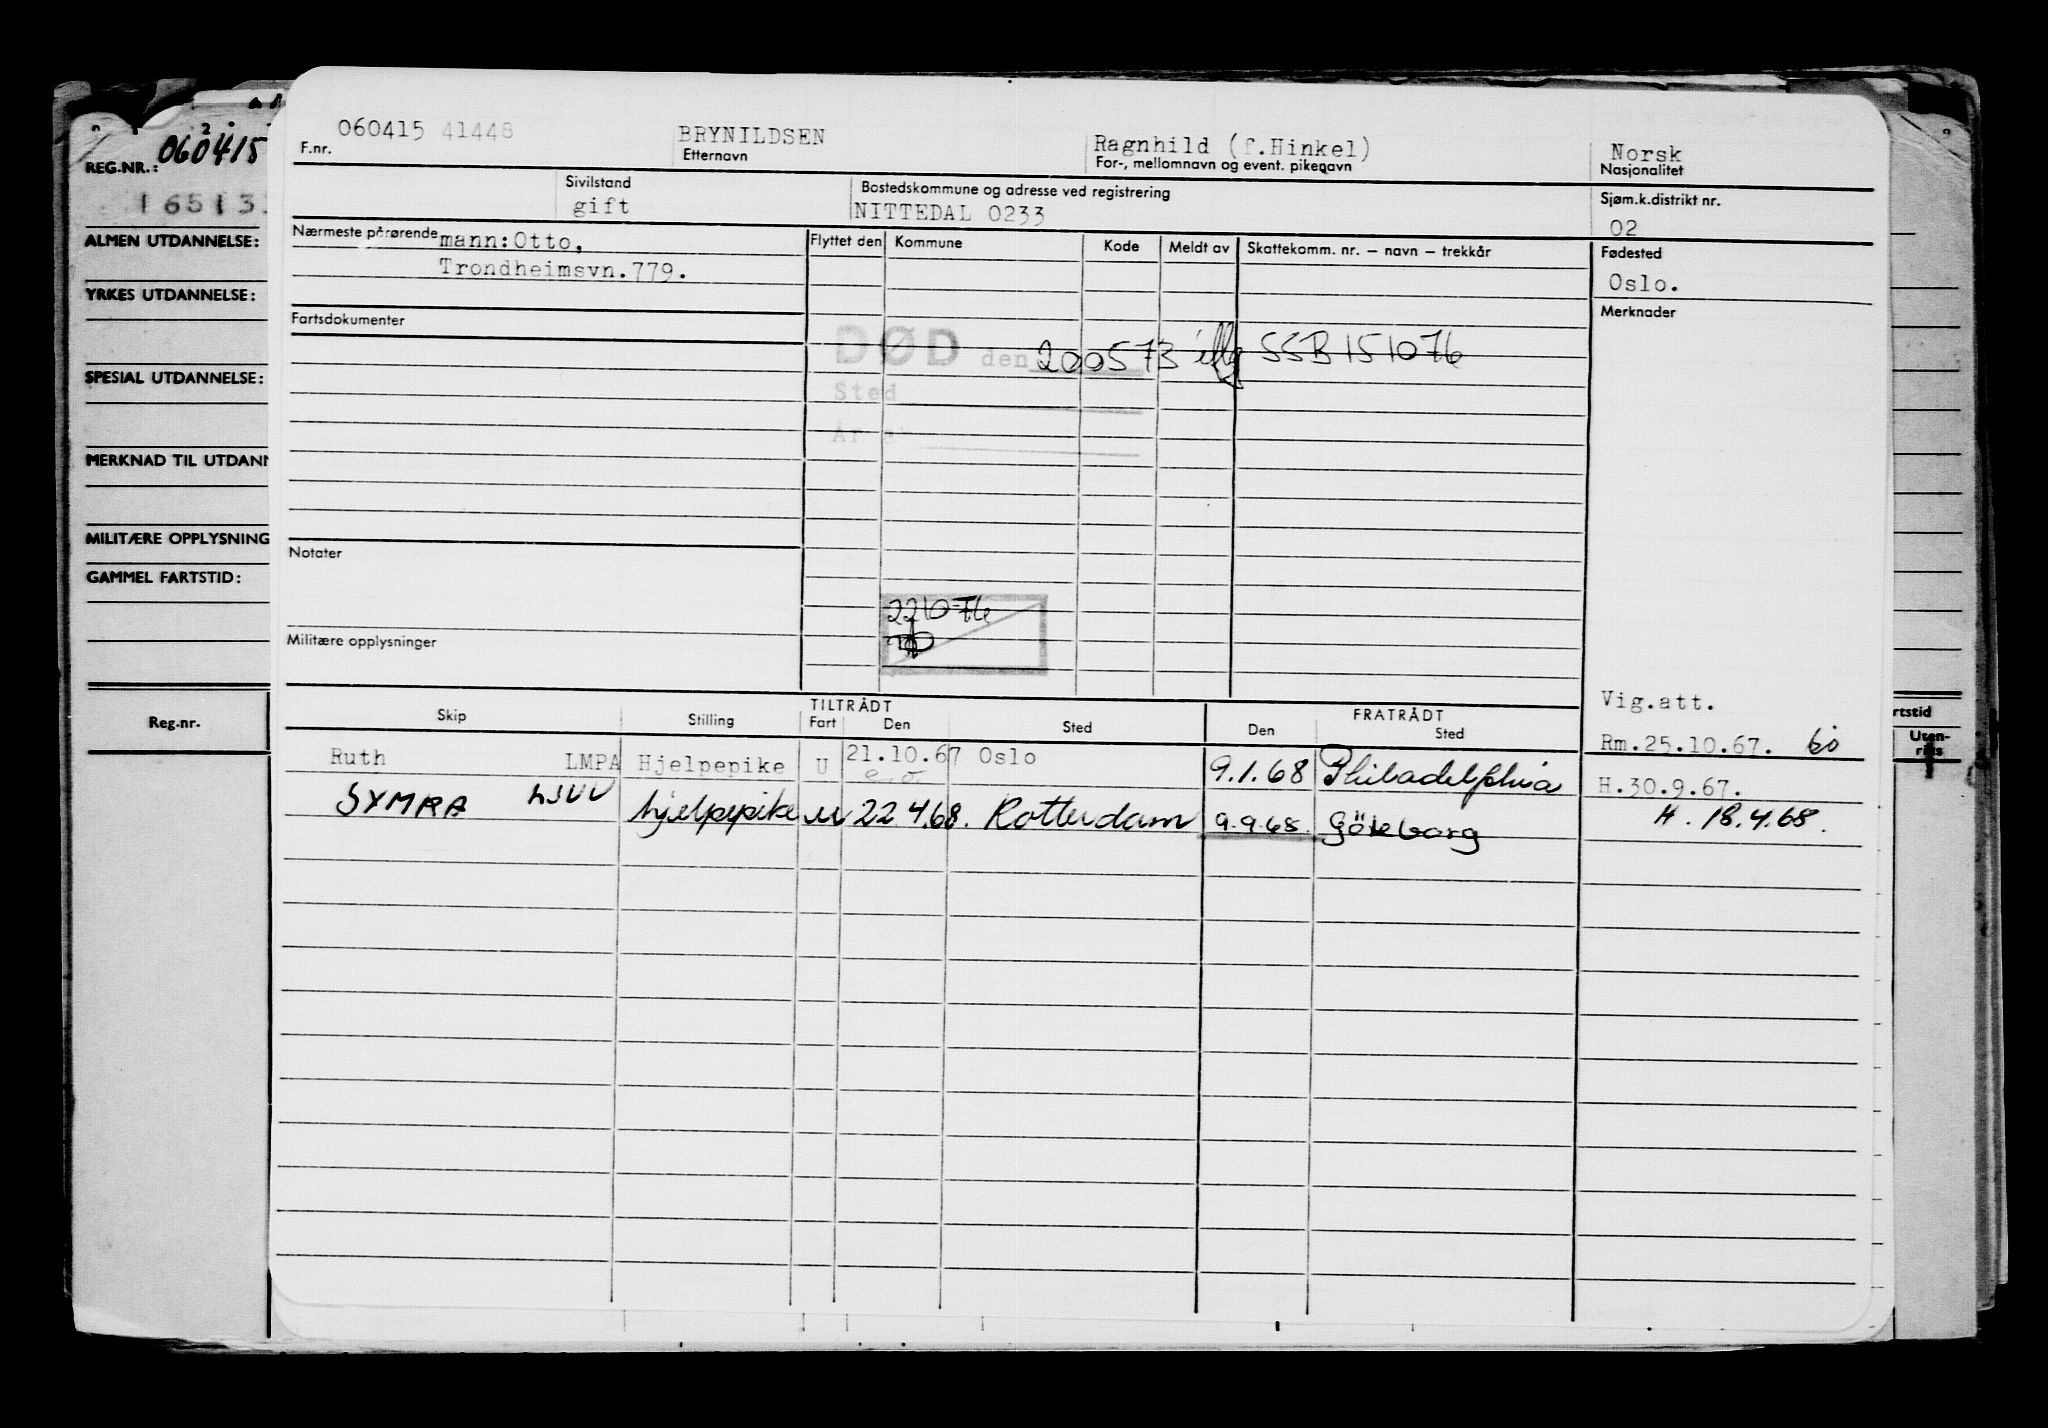 060415 41448 BRYNILDSEN Ragnhild (f.Hinkel) Norsk
F.nr. Etternavn For-, mellomnavn og event. pikenavn Nasjonalitet
Sivilstand Bostedskommune og adresse ved registrering Sjøm.k.distrikt nr.
gift NITTEDAL 0233 02
Nærmeste pårørende mann:Otto, Flyttet den Kommune Kode Meldt av Skattekomm. nr. – navn – trekkår Fødested
Trondheimsvn.779. Oslo.
Fartsdokumenter Merknader
DØD den 200573 iflg SSB 151076
Sted
År
Notater
221076
Militære opplysninger
Vig.att.
Skip Stilling TILTRÅDT Fart Den Sted FRATRÅDT Den Sted
Rm.25.10.67. bò
Ruth LMPA Hjelpepike U 21.10.67 Oslo 9.1.68 Philadelphia H.30.9.67.
e.o
SYMRA LJUV hjelpepike u 22.4.68. Rotterdam 9.9.68. Göteborg H. 18.4.68.
REG.NR.: 060415
16513
ALMEN UTDANNELSE:
YRKES UTDANNELSE:
SPESIAL UTDANNELSE:
MERKNAD TIL UTDANN
MILITÆRE OPPLYSNING
GAMMEL FARTSTID:
Reg.nr.
rtstid
Uten-
riks